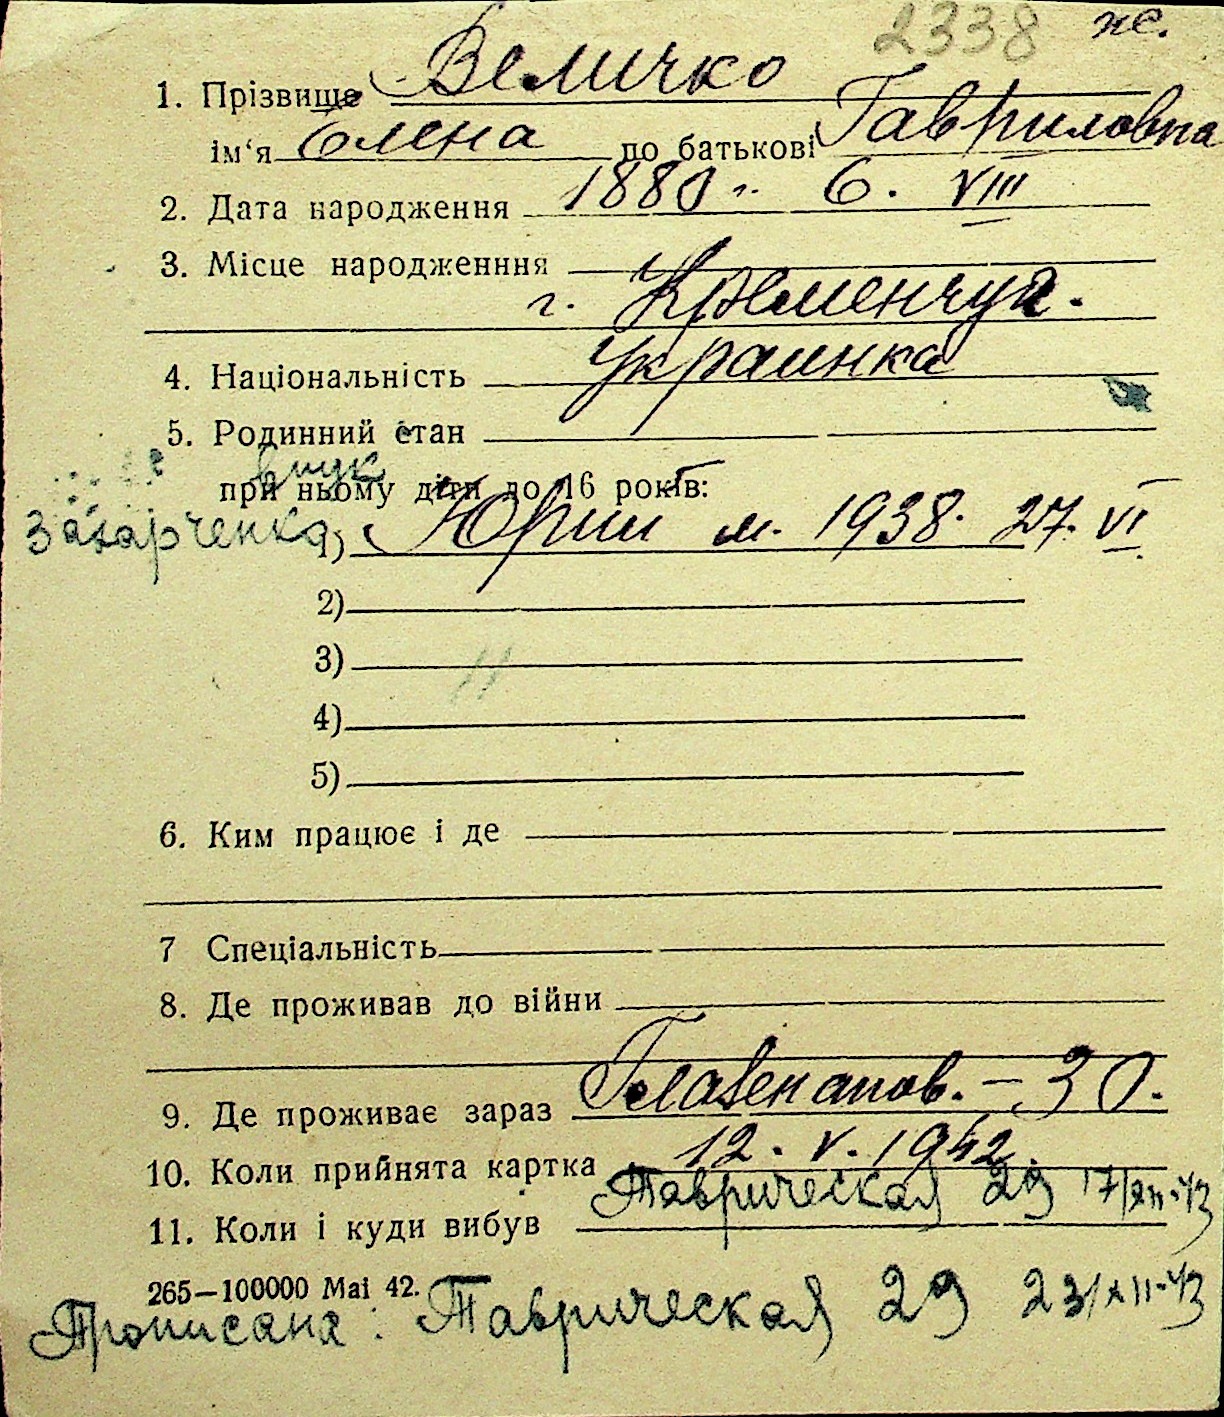 2338 ж.
1. Прізвище Величко
ім‘я Елена по батькові Гавриловна
2. Дата народження 1880 г. 6. VIII
3. Місце народженння
г. Кременчуг.
4. Національність украинка
5. Родинний стан
внук
при ньому діти до 16 років:
Захарченко 1) Юрий м. 1938. 27. VI
2)
3)
4)
5)
6. Ким працює і де
7 Спеціальність
8. Де проживав до війни
9. Де проживає зараз – 30.
10. Коли прийнята картка 12. V. 1942.
Таврическая 29 17/XII-43
11. Коли і куди вибув
265—100000 Mai 42.
Прописана: Таврическая 29 23/XII-43